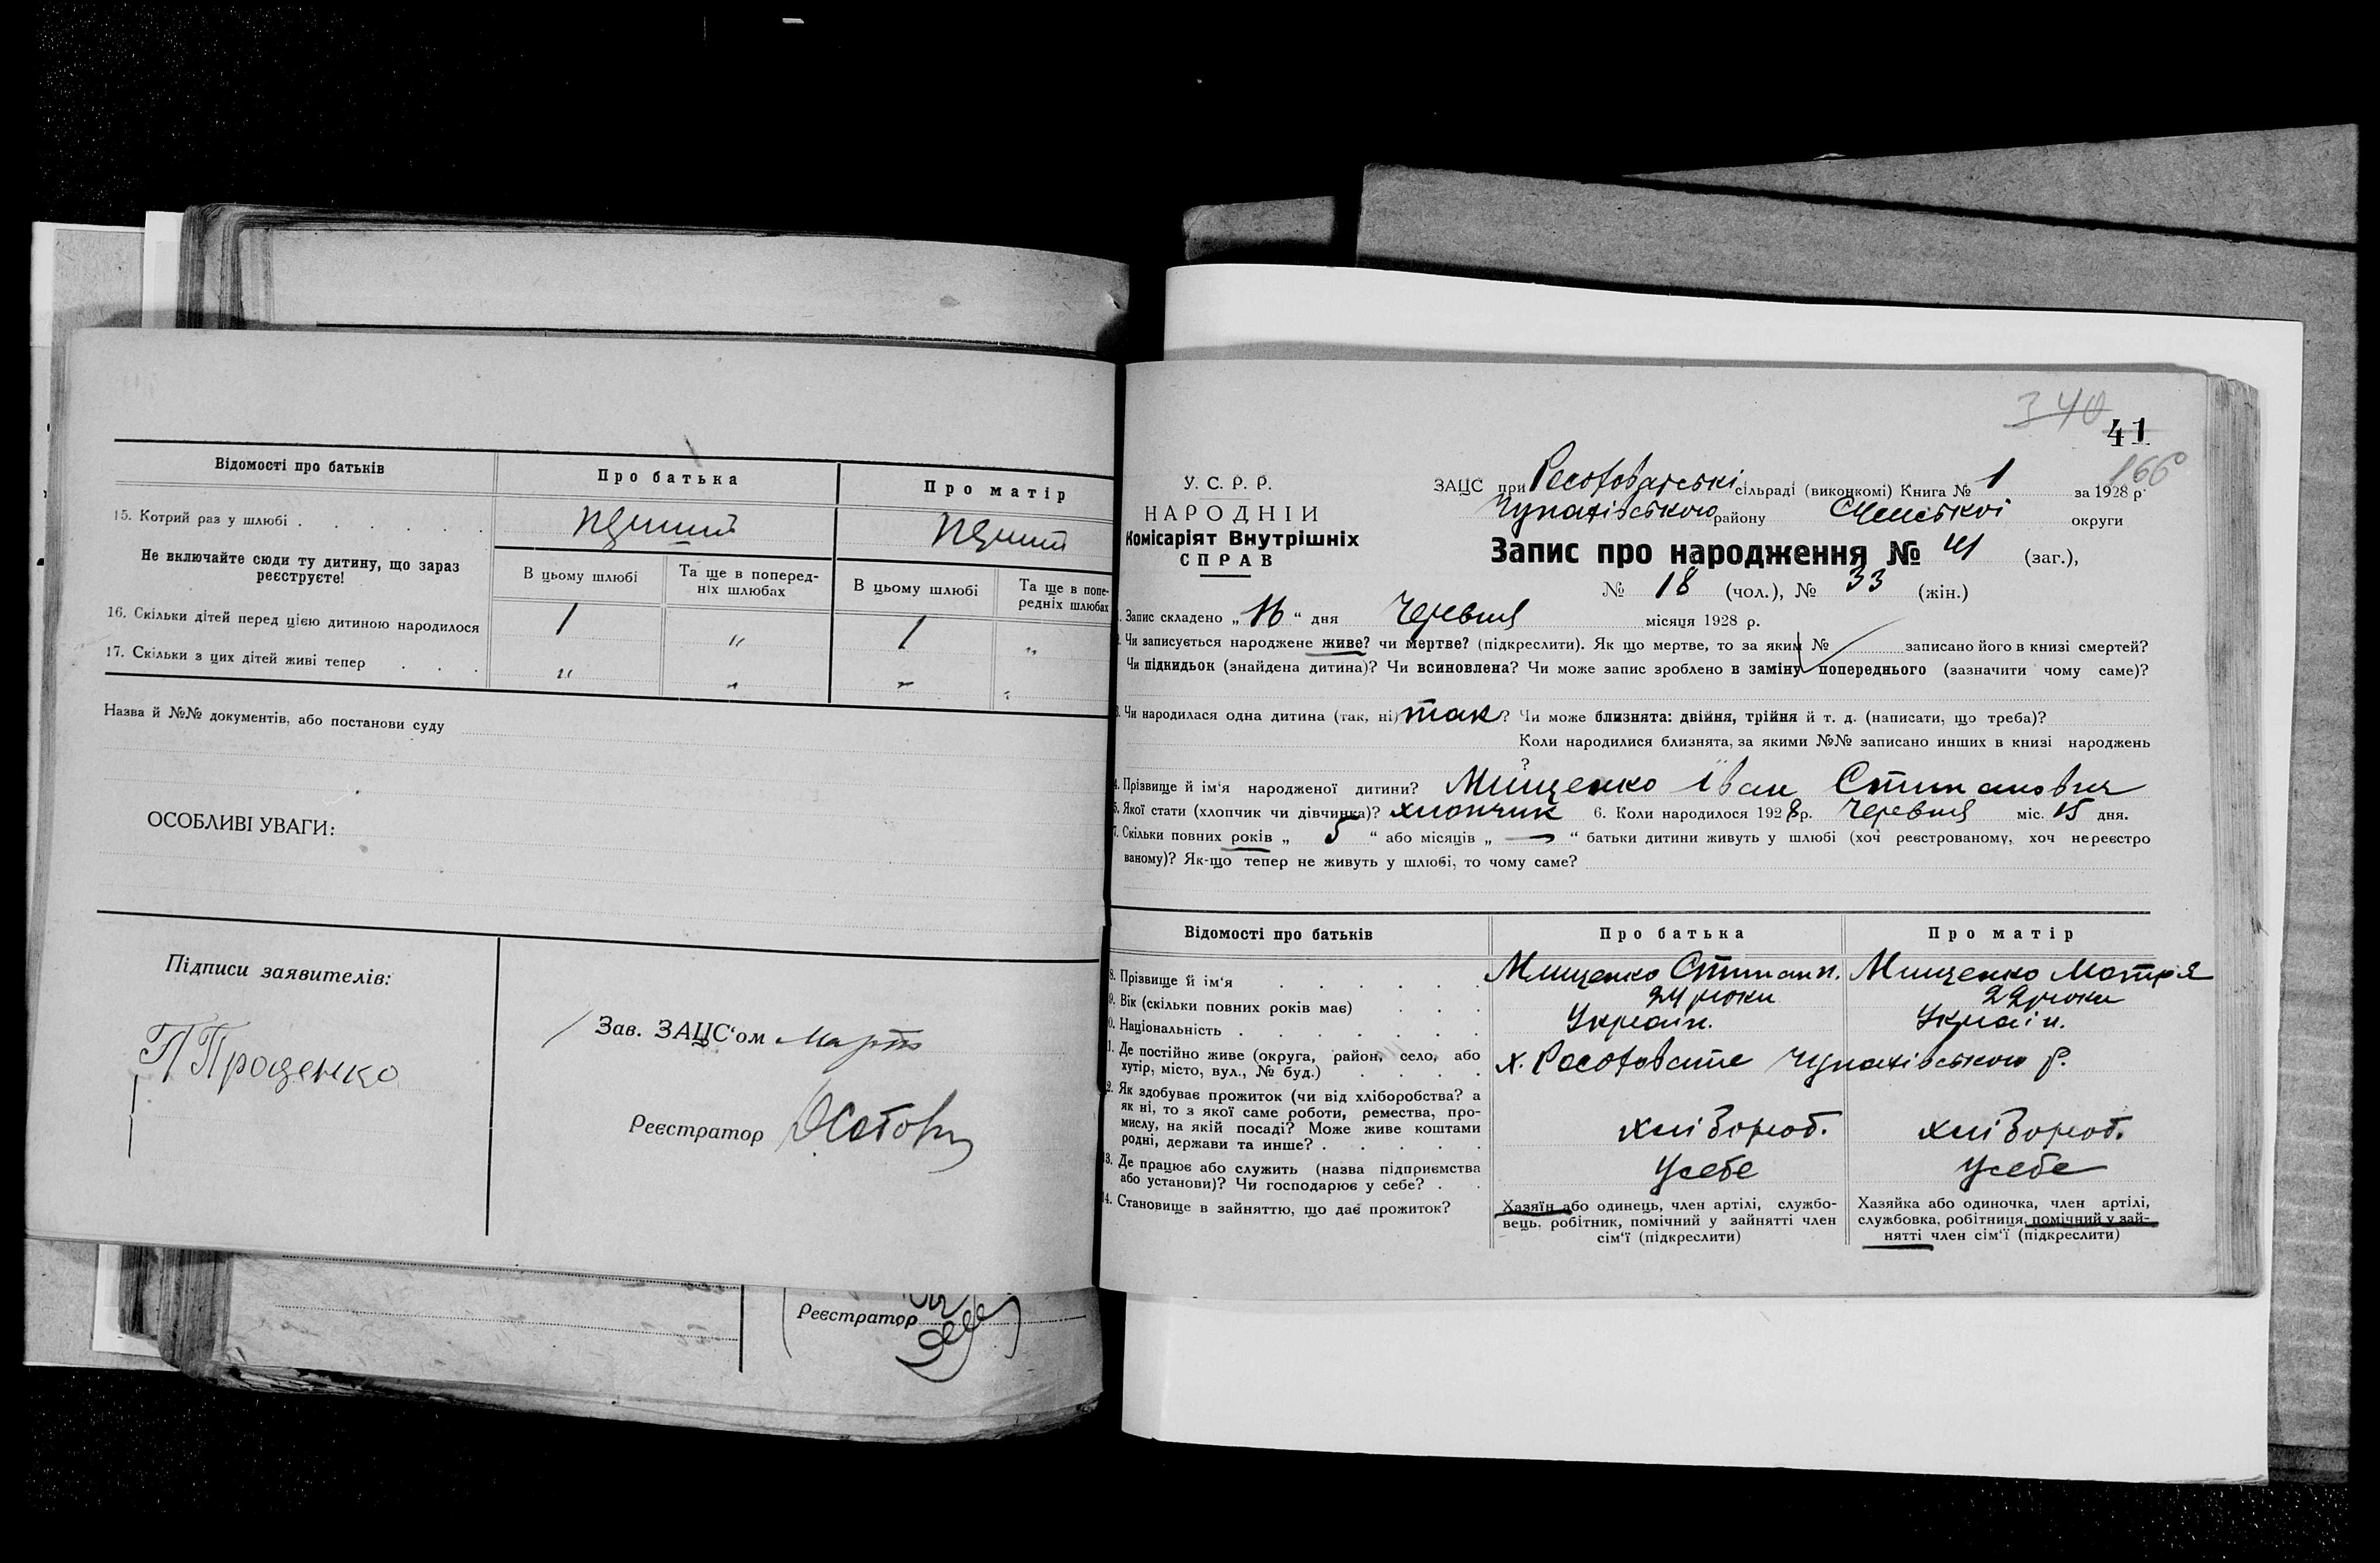 Відомості про батьків
Про батька
Про матір
15. Котрий раз у шлюбі
Не включайте сюди ту дитину, що зараз
реєструєте!
В цьому шлюбі
Та ще в поперед-
ніх шлюбах
В цьому шлюбі
Та ще в попе-
редніх шлюбах
16. Скільки дітей перед цією дитиною народилося 1 " 1 "
17. Скільки з цих дітей живі тепер "
Назва й №№ документів, або постанови суду
ОСОБЛИВІ УВАГИ:
Підписи заявителів:
П Проценко
Зав. ЗАЦС'ом
Реєстратор
Реєстратор
340
41
166
У. С. Р. Р.
НАРОДНІЙ
Комісаріят Внутрішніх
СПРАВ
ЗАЦС при сільраді (виконкомі) Книга № 1 за 1928 р.
Чупахівського району Сумської округи
Запис про народження № 41 (заг.),
№ 18 (чол.), № 33 (жін.)
1. Запис складено „ 16 “ дня Червня місяця 1928 р.
2. Чи записується народжене живе? чи мертве? (підкреслити). Як що мертве, то за яким № записано його в книзі смертей?
Чи підкидьок (знайдена дитина)? Чи всиновлена? Чи може запис зроблено в заміну попереднього (зазначити чому саме)?
3. Чи народилася одна дитина (так, ні) так? Чи може близнята: двійня, трійня й т. д. (написати, що треба)?
Коли народилися близнята, за якими №№ записано инших в книзі народжень
?
4. Прізвище й ім'я народженої дитини? Мищенко Іван
5. Якої стати (хлопчик чи дівчинка)? хлопчик 6. Коли народилося 1928 р. Червня міс. 15 дня.
7. Скільки повних років „ 5 “ або місяців „ — “ батьки дитини живуть у шлюбі (хоч реєстрованому, хоч нереєстро
ваному)? Як-що тепер не живуть у шлюбі, то чому саме?
Відомості про батьків
Про батька
Про матір
8. Прізвище й ім'я Мищенко Мищенко Мотря
9. Вік (скільки повних років має) 24 роки 22 роки
10. Національність Україн. Україн.
11. Де постійно живе (округа, район, село, або
хутір, місто, вул., № буд.) х. Чупахівського р.
12. Як здобуває прожиток (чи від хліборобства? а
як ні, то з якої саме роботи, ремества, про-
мислу, на якій посаді? Може живе коштами
родні, держави та инше? хлібороб. хлібороб.
13. Де працює або служить (назва підприємства
або установи)? Чи господарює у себе? У себе У себе
14. Становище в зайняттю, що дає прожиток?
Хазяїн або одинець, член артілі, службо-
вець, робітник, помічний у зайнятті член
сім'ї (підкреслити)
Хазяйка або одиночка, член артілі,
службовка, робітниця, помічний у зай-
нятті член сім'ї (підкреслити)